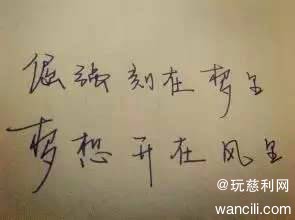 倔强刻在梦里
梦想开在风里
@玩慈利网
wancili.com